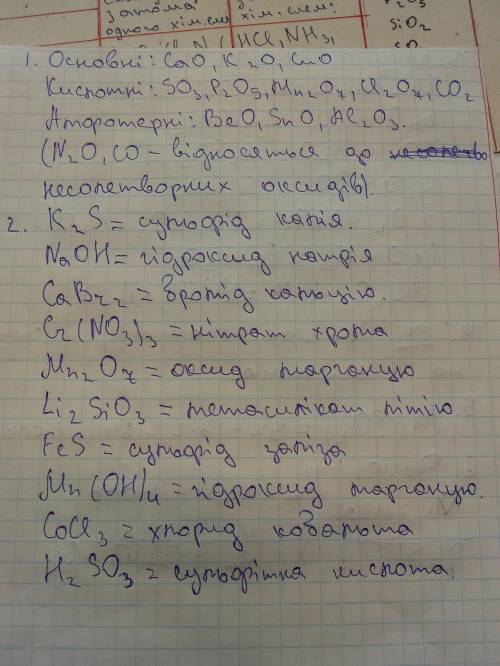 затома
одного хім. елем
хім. елем.
HCl, NH₃,
P₂O₅
SiO₂
1. Основні: CaO, K₂O, CuO
Кислотні: SO₃, P₂O₅, Mn₂O₇, Cl₂O₇, CO₂
Амфотерні: BeO, SnO, Al₂O₃.
(N₂O, CO – відносяться до
несолетворних оксидів).
2. K₂S = сульфід калія.
NaOH = гідроксид натрія
CaBr₂ = бромід кальцію.
Cr(NO₃)₃ = нітрат хрома
Mn₂O₇ = оксид марганцю
Li₂SiO₃ = метасилікат літію
FeS = сульфід заліза
Mn(OH)₄ = гідроксид марганцю.
CoCl₃ = хлорид кобальта
H₂SO₃ = сульфітна кислота.